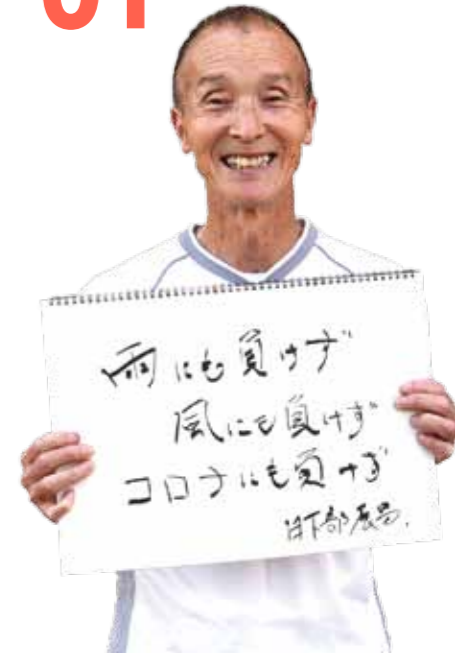 雨にも負けず
風にも負けず
コロナにも負けず
日下部展